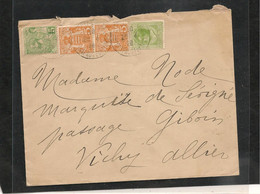 Madame Node
Marquise de Sévigné
passage Giboin
Vichy Allier